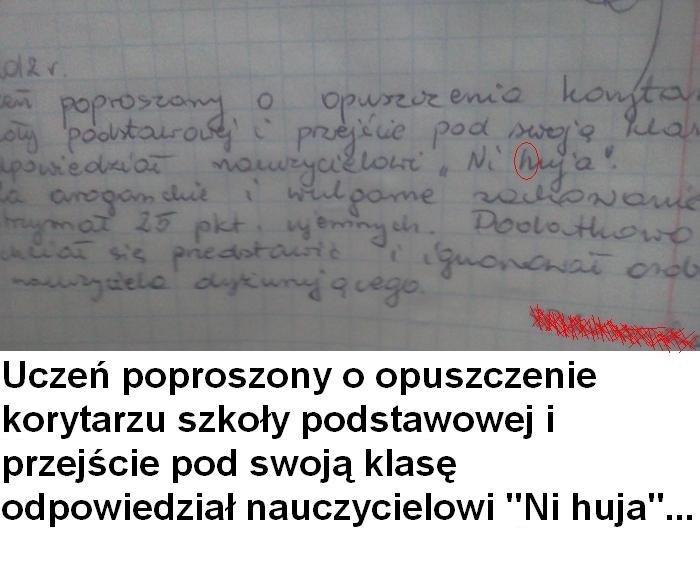 012 r.
eń poproszony o opuszczenia koryta
oły podstawowej i przejście pod swoją klas
powiedział nauczycielowi „Ni huja".
a aroganckie i wulgarne zachowanie
trzymał 25 pkt. ujemnych. Dodatkowo
chciał się przedstawić i ignorował osob
nauczyciela dyżurującego.
Uczeń poproszony o opuszczenie
korytarzu szkoły podstawowej i
przejście pod swoją klasę
odpowiedział nauczycielowi "Ni huja"...